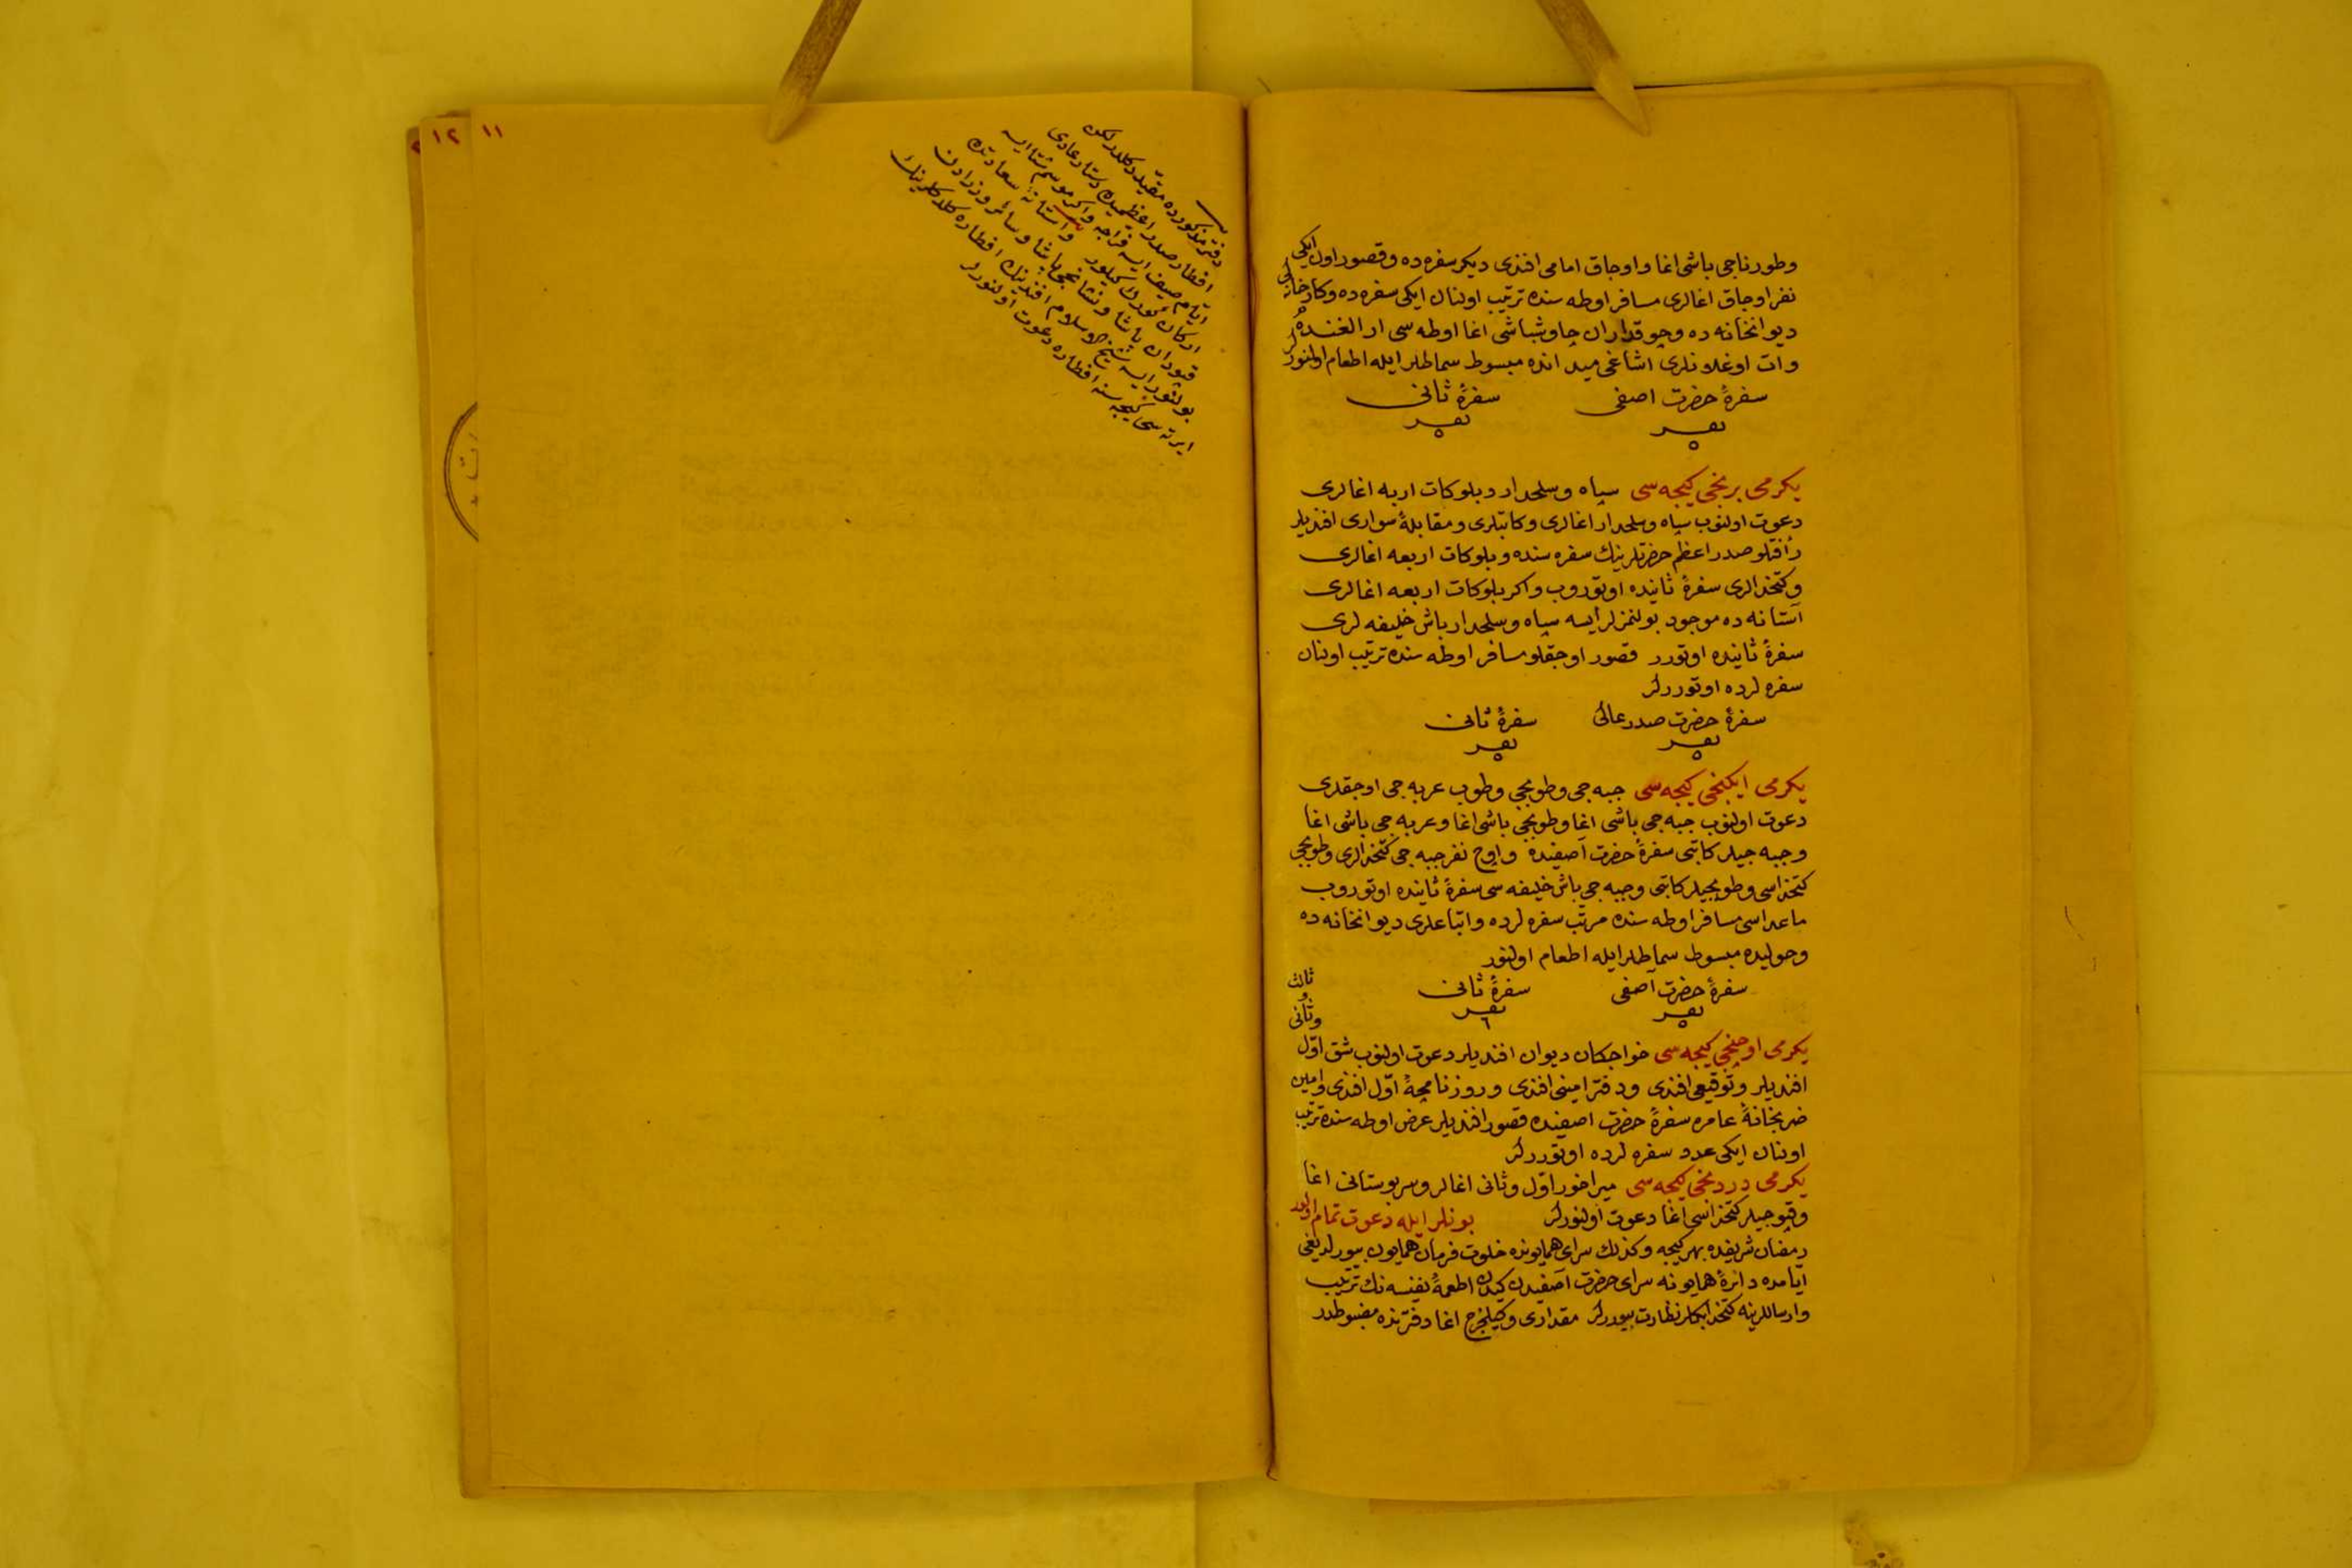 وطورناجی باشی اغا و اوجاق امامی افندی دیکر سفره ده وقصور اون ایکی
نفر اوجاق اغالری مسافر اوطه سنده ترتیب اولنان ایکی سفره ده وکارخانه لی
دیوانخانه ده وچوقداران چاوشباشی اغا اوطه سی ارالغنده
وات اوغلانلری اشاغی میدانده مبسوط سماطلر ایله اطعام اولنورلر
سفرهٔ حضرت اصفی سفرهٔ ثانی
نفر نفر
٥ ٥
یکرمی برنجی کیجه سی سپاه وسلحدار و بلوکات اربعه اغالری
دعوت اولنوب سپاه وسلحدار اغالری وکاتبلری ومقابلهٔ سواری افندیلر
رأفتلو صدر اعظم حضرتلرینك سفره سنده وبلوکات اربعه اغالری
وکتخدالری سفرهٔ ثانیده اوتوروب واکر بلوکات اربعه اغالری
آستانه ده موجود بولنمزلر ایسه سپاه وسلحدار باش خلیفه لری
سفرهٔ ثانیده اوتورر قصور اوجقلو مسافر اوطه سنده ترتیب اولنان
سفره لرده اوتوررلر
سفرهٔ حضرت صدر عالی سفرهٔ ثانی
نفر نفر
٥ ٥
یکرمی ایکنجی کیجه سی جبه جی وطوپچی وطوپ عربه جی اوجقلری
دعوت اولنوب جبه جی باشی اغا وطوپچی باشی اغا وعربه جی باشی اغا
وجبه جیلر کاتبی سفرهٔ حضرت آصفیده واوچ نفر جبه جی کتخدالری وطوپچی
کتخداسی وطوپچیلر کاتبی وجبه جی باش خلیفه سی سفرهٔ ثانیده اوتوروب
ماعداسی مسافر اوطه سنده مرتب سفره لرده واتباعلری دیوانخانه ده
وحولیده مبسوط سماطلر ایله اطعام اولنور
سفرهٔ حضرت آصفی سفرهٔ ثانی
نفر نفر
٥ ٦
وثانی وثالث
یکرمی اوچنجی کیجه سی خواجکان دیوان افندیلر دعوت اولنوب شق اوّل
افندیلر وتوقیعی افندی ودفتر امینی افندی وروزنامچهٔ اوّل افندی وامین
ضربخانهٔ عامره سفرهٔ حضرت اصفیده قصور افندیلر عرض اوطه سنده ترتیب
اولنان ایکی عدد سفره لرده اوتوررلر
یکرمی دردنجی کیجه سی میراخور اوّل وثانی اغالر وسربوستانی اغا
وقپوجیلر کتخداسی اغا دعوت اولنورلر بونلر ایله دعوت تمام اولور
رمضان شریفده بهر کیجه وکذلك سرای همایونده خلوت فرمان همایون بیورلدیغی
ایامده دائرهٔ همایونه سرای حضرت آصفیدن کیدن اطعمهٔ نفیسه نك ترتیب
وارساللرینه کتخدا بکلر نظارت بیوررلر مقداری وکیلخرج اغا دفترنده مضبوطدر
١١
١٢
دفتر مذکورده مقیّد دکلدر لکن
افطار صدر اعظمیده دستار عادی
ایّام صیف ایسه فراجه واکر موسم شتا ایسه
ارکان کورك کیلور واستانهٔ سعادتده
قپودان پاشا ونشانجی پاشا وسائر وزرادن
بولنور ایسه شیخ الاسلام افندینك افطاره کلدکلرینك
ایرته سی کیجه سنه افطاره دعوت اولنورلر